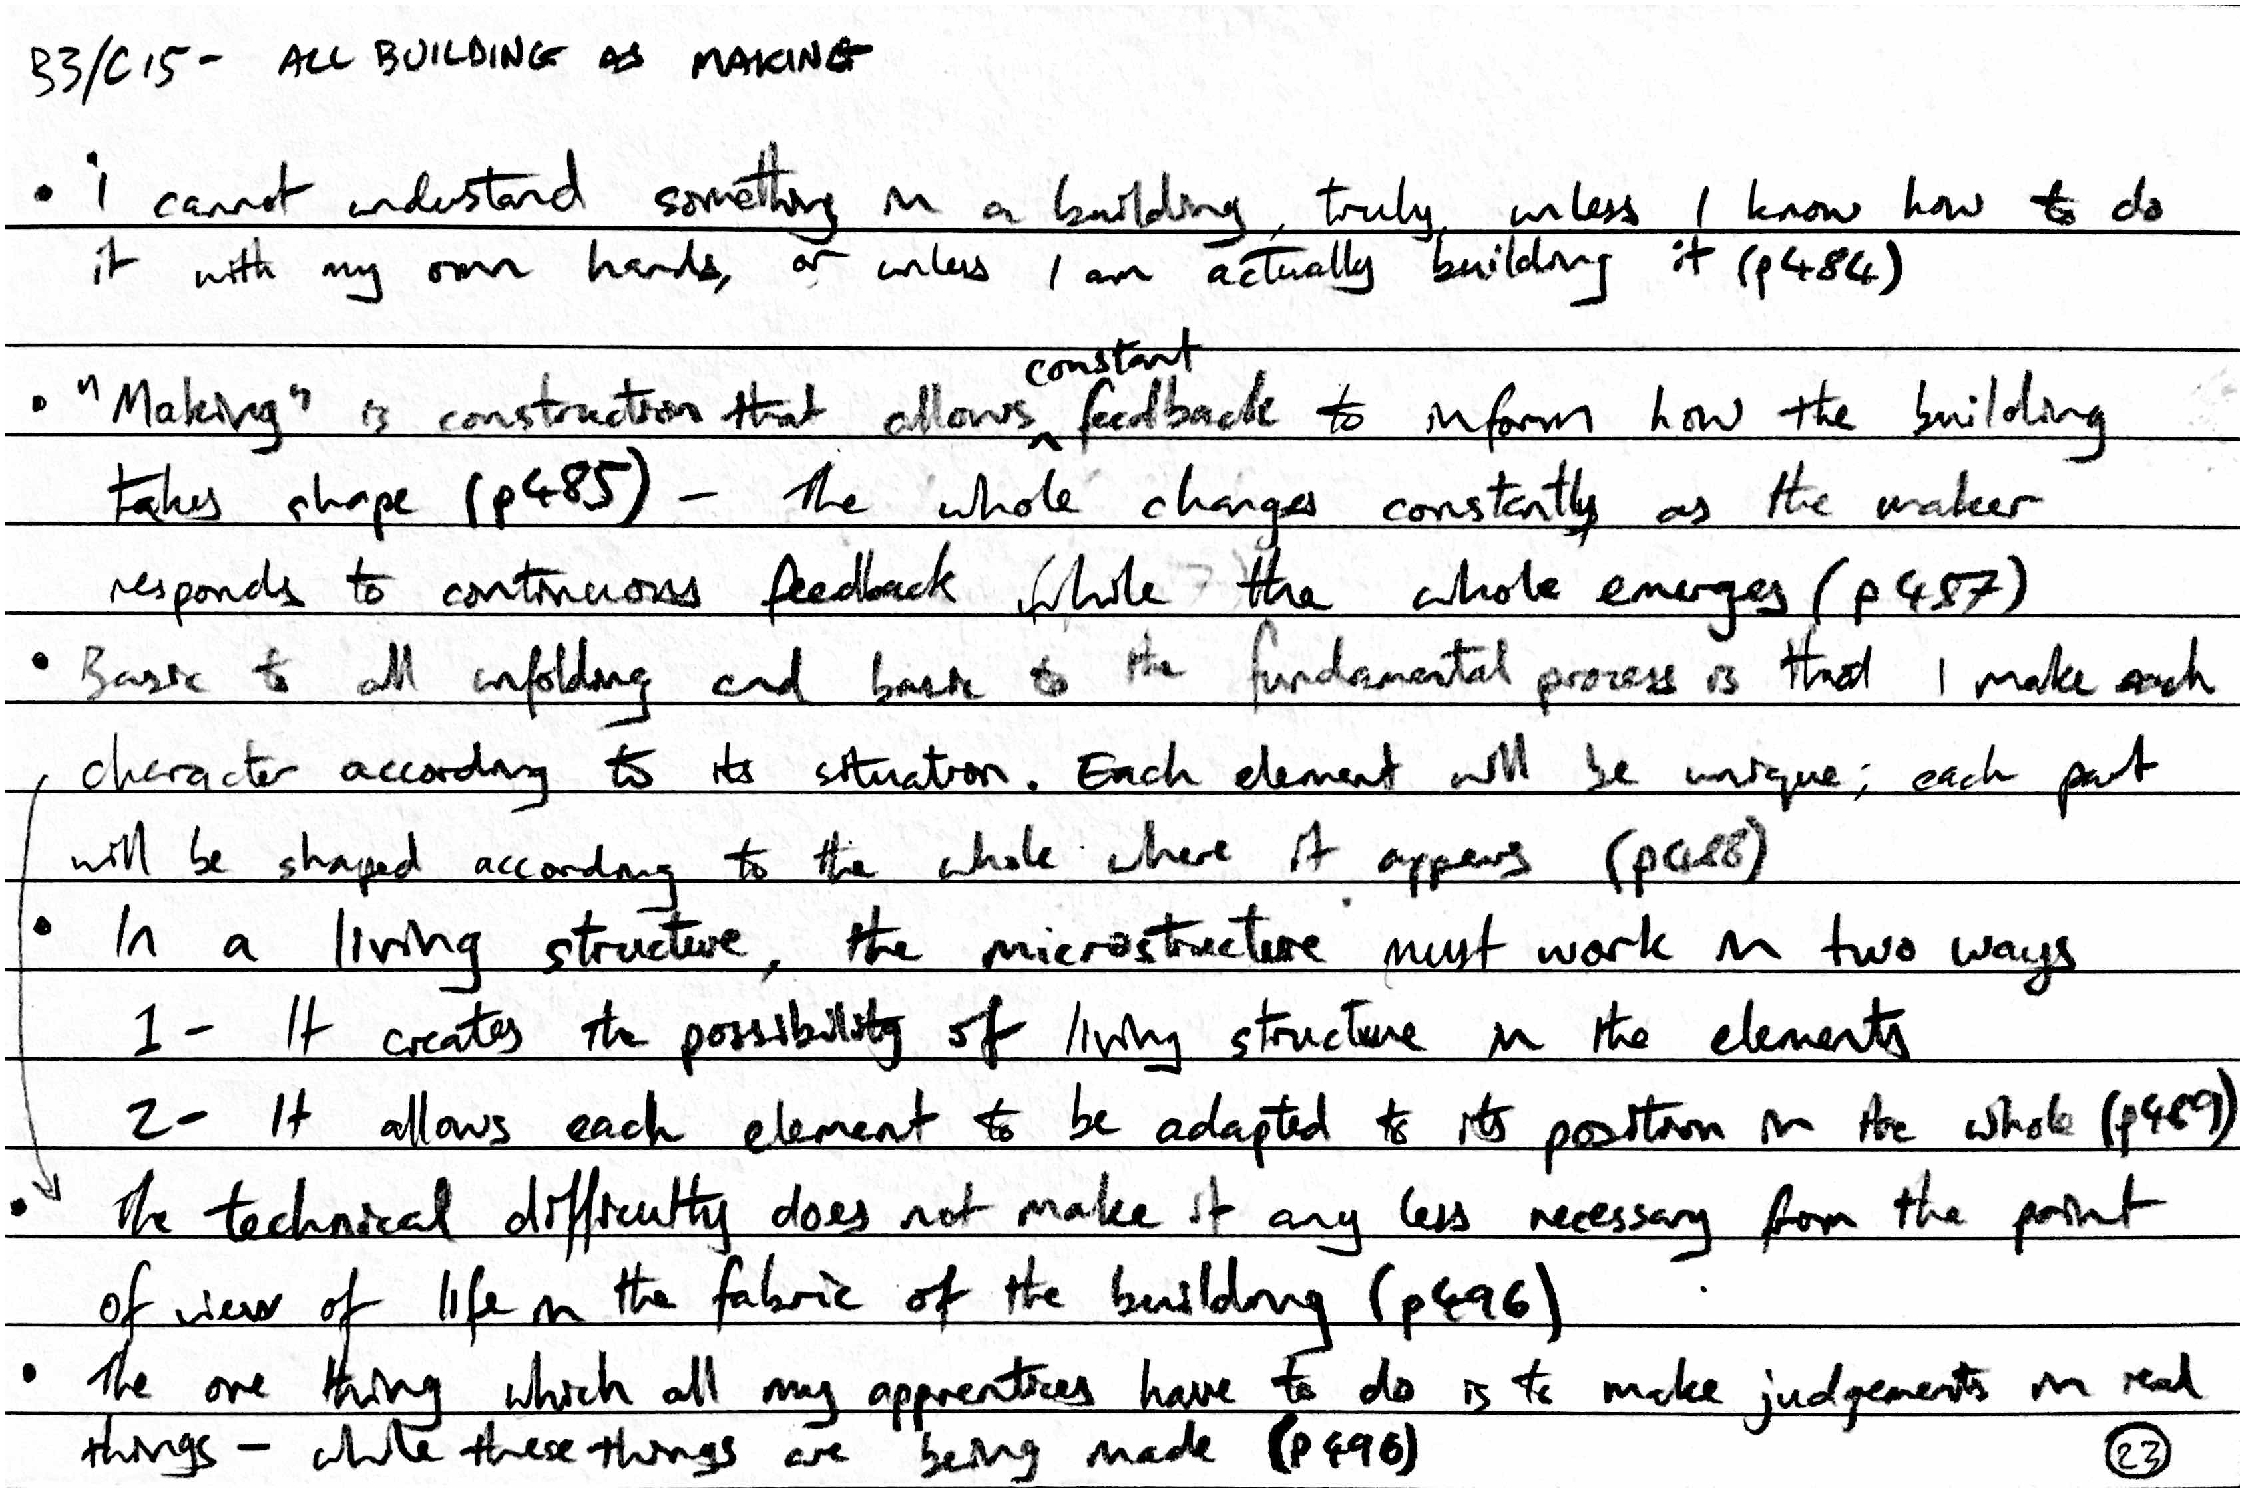 B3/C15 - ALL BUILDING AS MAKING
• I cannot understand something in a building, truly, unless I know how to do
it with my own hands, or unless I am actually building it (p484)
• "Making" is construction that allows constant feedback to inform how the building
takes shape (p485) - The whole changes constantly as the maker
responds to continuous feedback while the whole emerges (p487)
• Basic to all unfolding and basic to the fundamental process is that I make each
character according to its situation. Each element will be unique; each part
will be shaped according to the whole where it appears (p488)
• In a living structure, the microstructure must work in two ways
1 - It creates the possibility of living structure in the elements
2 - It allows each element to be adapted to its position in the whole (p489)
• The technical difficulty does not make it any less necessary from the point
of view of life in the fabric of the building (p496)
• The one thing which all my apprentices have to do is to make judgements in real
things - while these things are being made (p496)
23